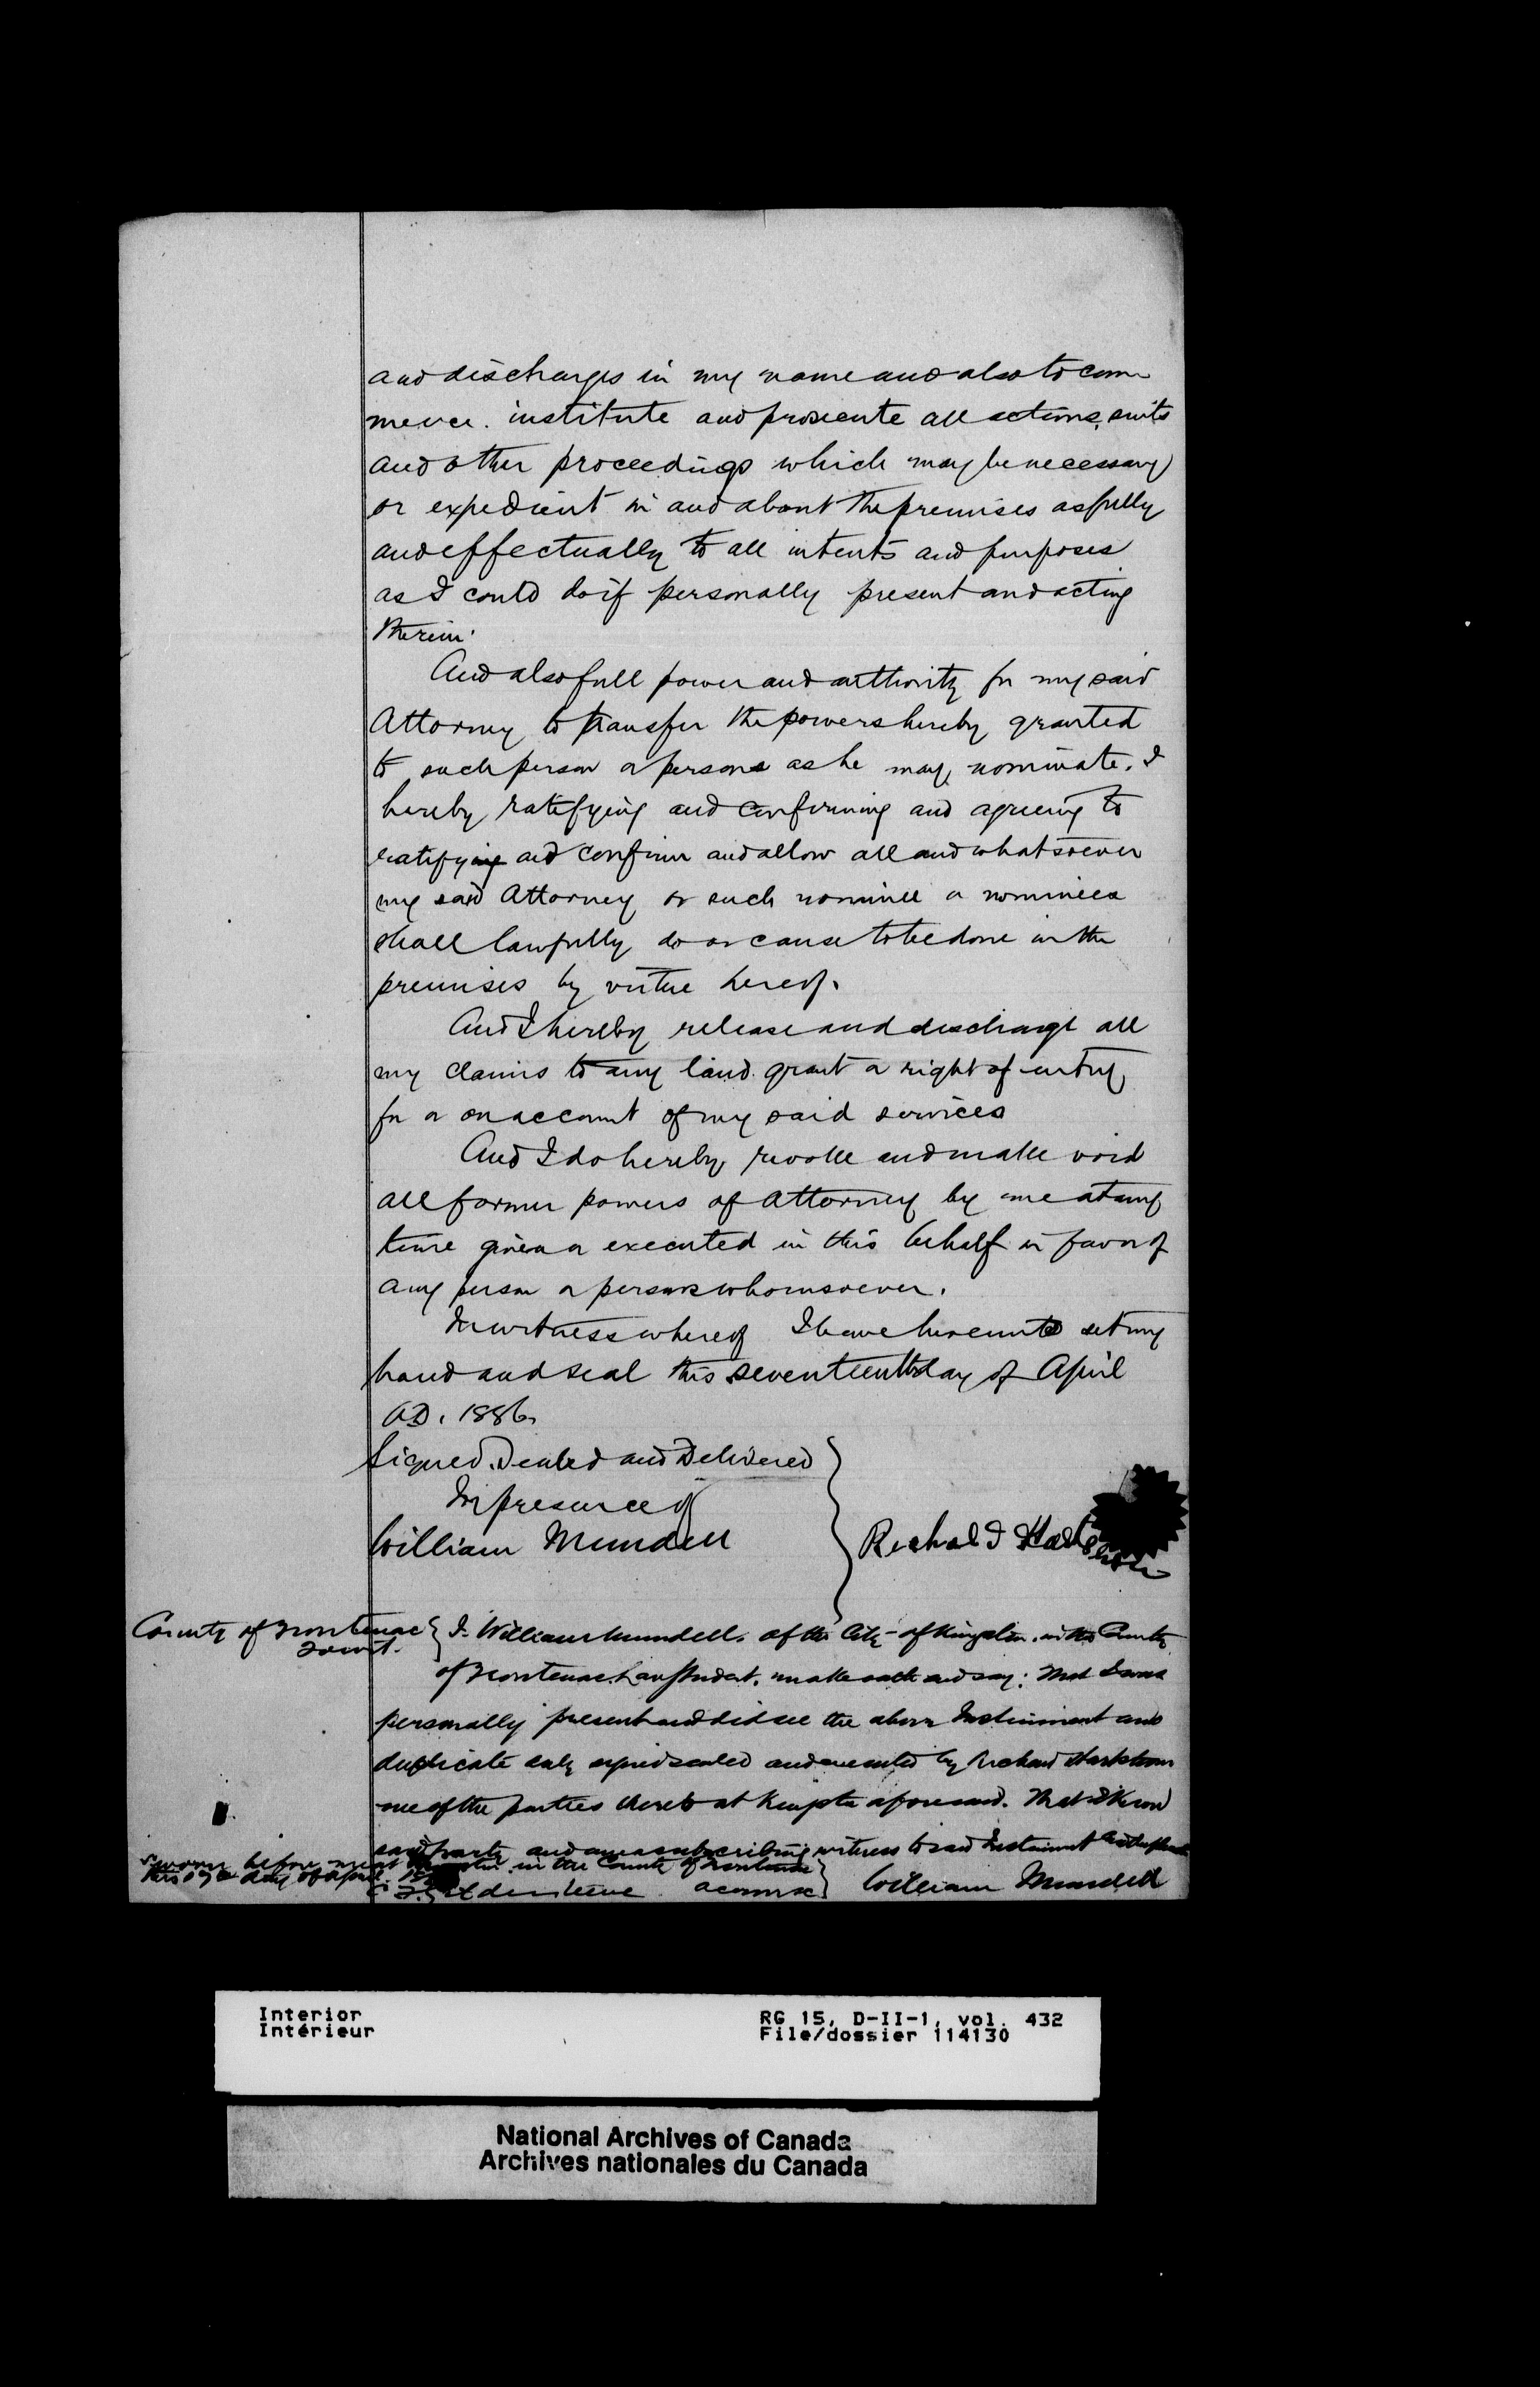 and discharges in my name and also to com
mence. institute and prosecute all actions, suits
and other proceedings which may be necessary
or expedient in and about the premises as fully
and effectually to all intents and purposes
as I could do if personally present and acting
therein.
And also full power and authority for my said
Attorney to transfer the powers hereby granted
to such person or persons as he may nominate. I
hereby ratifying and confirming and agreeing to
ratifying and confirm and allow all and whatsoever
my said Attorney or such nominee or nominees
shall lawfully do or cause to be done in the
premises by virtue hereof.
And I hereby release and discharge all
my claims to any land grant or right of entry
for or on account of my said services
And I do hereby revoke and make void
all former powers of attorney by me at any
time given or executed in this behalf in favor of
any person or persons whomsoever.
In witness whereof I have hereunto set my
hand and seal this seventeenth day of April
AD. 1886.
Signed, Sealed and Delivered
In presence of
William Mundell
Richard
County of Frontenac
To wit.
I William Mundell. of the City of Kingston. in the County
of Frontenac. Law Student. make oath and say: That I was
personally present and did see the above Instrument and
duplicate duly signed sealed and executed by Richard
one of the parties thereto at Kingston aforesaid. That I know
said party and am a subscribing witness to said Instrument and duplicate
Sworn before me at Kingston in the County of Frontenac
this 17th day of April
William Mundell
Interior
Intérieur
RG 15, D-II-1, vol. 432
File/dossier 114130
National Archives of Canada
Archives nationales du Canada